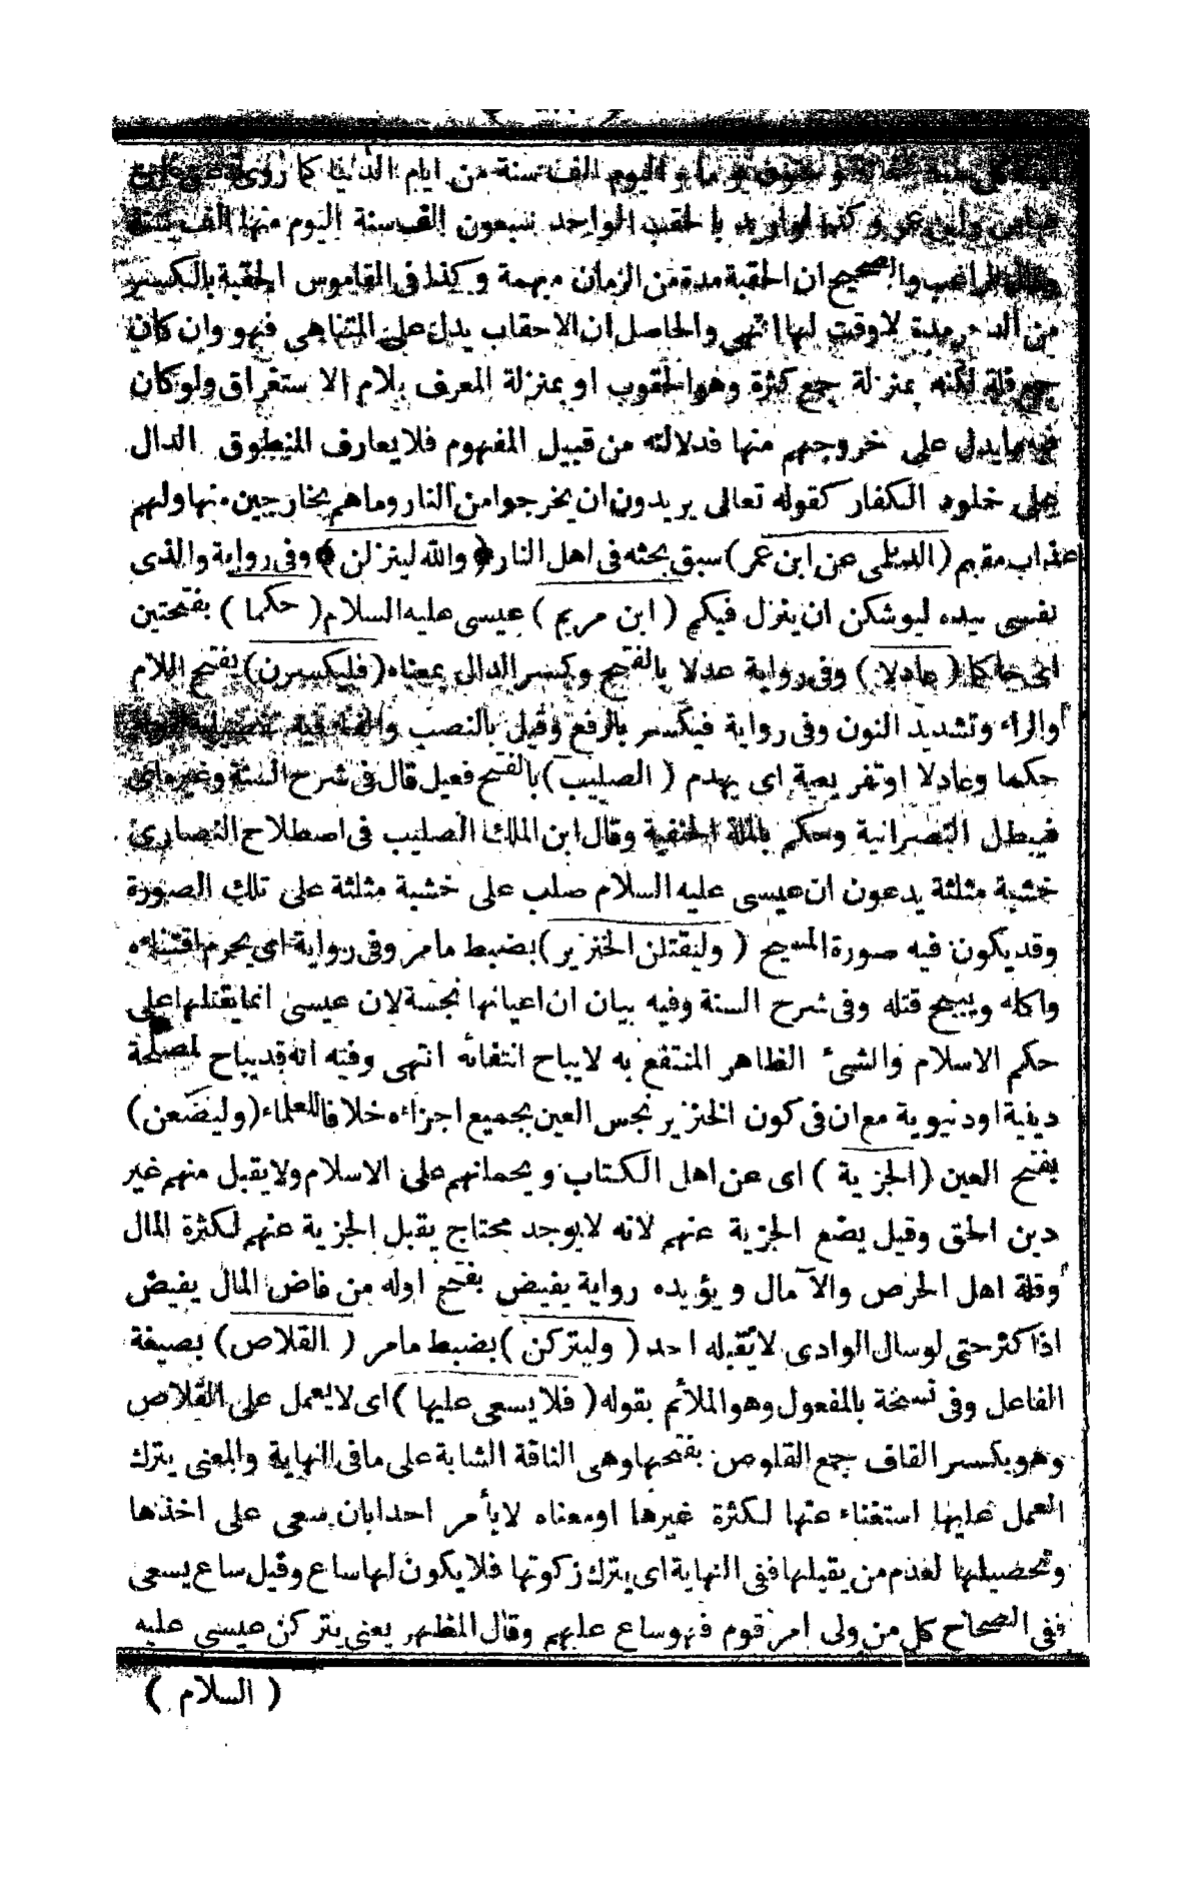 اليوم الف سنة من ايام الدنيا كما روى عن
وكذا لو اريد بالحقب الواحد سبعون الف سنة اليوم منها الف سنة
وقال الراغب والصحيح ان الحقبة مدة من الزمان مبهمة وكذا فى القاموس الحقبة بالكسر
من الدهر مدة لا وقت لها انتهى والحاصل ان الاحقاب يدل على المتناهى فهو وان كان
جمع قلة لكنه بمنزلة جمع كثرة وهو الحقوب او بمنزلة المعرف بلام الاستغراق ولو كان
فيها يدل على خروجهم منها فدلالته من قبيل المفهوم فلا يعارف المنطوق الدال
على خلود الكفار كقوله تعالى يريدون ان يخرجوا من النار وما هم بخارجين منها ولهم
عذاب مقيم (الديلمى عن ابن عمر) سبق بحثه فى اهل النار ﴿والله لينزلن﴾ وفى رواية والذى
نفسى بيده ليوشكن ان ينزل فيكم (ابن مريم) عيسى عليه السلام (حكما) بفتحتين
اى حاكما (عادلا) وفى رواية عدلا بالفتح وكسر الدال بمعناه (فليكسرن) بفتح اللام
والراء وتشديد النون وفى رواية فيكسر بالرفع وقيل بالنصب والفاء فيه تفصيلية
حكما وعادلا او تفريعية اى يهدم (الصليب) بالفتح فعيل قال فى شرح السنة وغيره اى
فيبطل النصرانية وحكم بالملة الحنفية وقال ابن الملك الصليب فى اصطلاح النصارى
خشبة مثلثة يدعون ان عيسى عليه السلام صلب على خشبة مثلثة على تلك الصورة
وقد يكون فيه صورة المسيح (وليقتلن الخنزير) بضبط ما مر وفى رواية اى يحرم اقتناءه
واكله ويبيح قتله وفى شرح السنة وفيه بيان ان اعيانها نجسة لان عيسى انما يقتلها على
حكم الاسلام والشئ الظاهر المنتفع به لايباح انتفائه انتهى وفيه انه قد يباح لمصلحة
دينية او دنيوية مع ان فى كون الخنزير نجس العين بجميع اجزاءه خلافا للعلماء (وليضعن)
بفتح العين (الجزية) اى عن اهل الكتاب ويحملنهم على الاسلام ولا يقبل منهم غير
دين الحق وقيل يضع الجزية عنهم لانه لايوجد محتاج يقبل الجزية عنهم لكثرة المال
وقلة اهل الحرص والآمال ويؤيده رواية يفيض بفتح اوله من فاض المال يفيض
اذا كثر حتى لوسال الوادى لا تقبله احد (وليتركن) بضبط ما مر (القلاص) بصيغة
الفاعل وفى نسخة بالمفعول وهو الملائم بقوله (فلا يسعى عليها) اى لايعمل على القلاص
وهو بكسر القاف جمع القلوص بفتحها وهى الناقة الشابة على ما فى النهاية والمعنى يترك
العمل عليها استغناء عنها لكثرة غيرها او معناه لا يأمر احدا بان يسعى على اخذها
وتحصيلها لعدم من يقبلها ففى النهاية اى يترك زكوتها فلا يكون لها ساع وقيل ساع يسعى
ففى الصحاح كل من ولى امر قوم فهو ساع عليهم وقال المظهر يعنى يتركن عيسى عليه
(السلام)